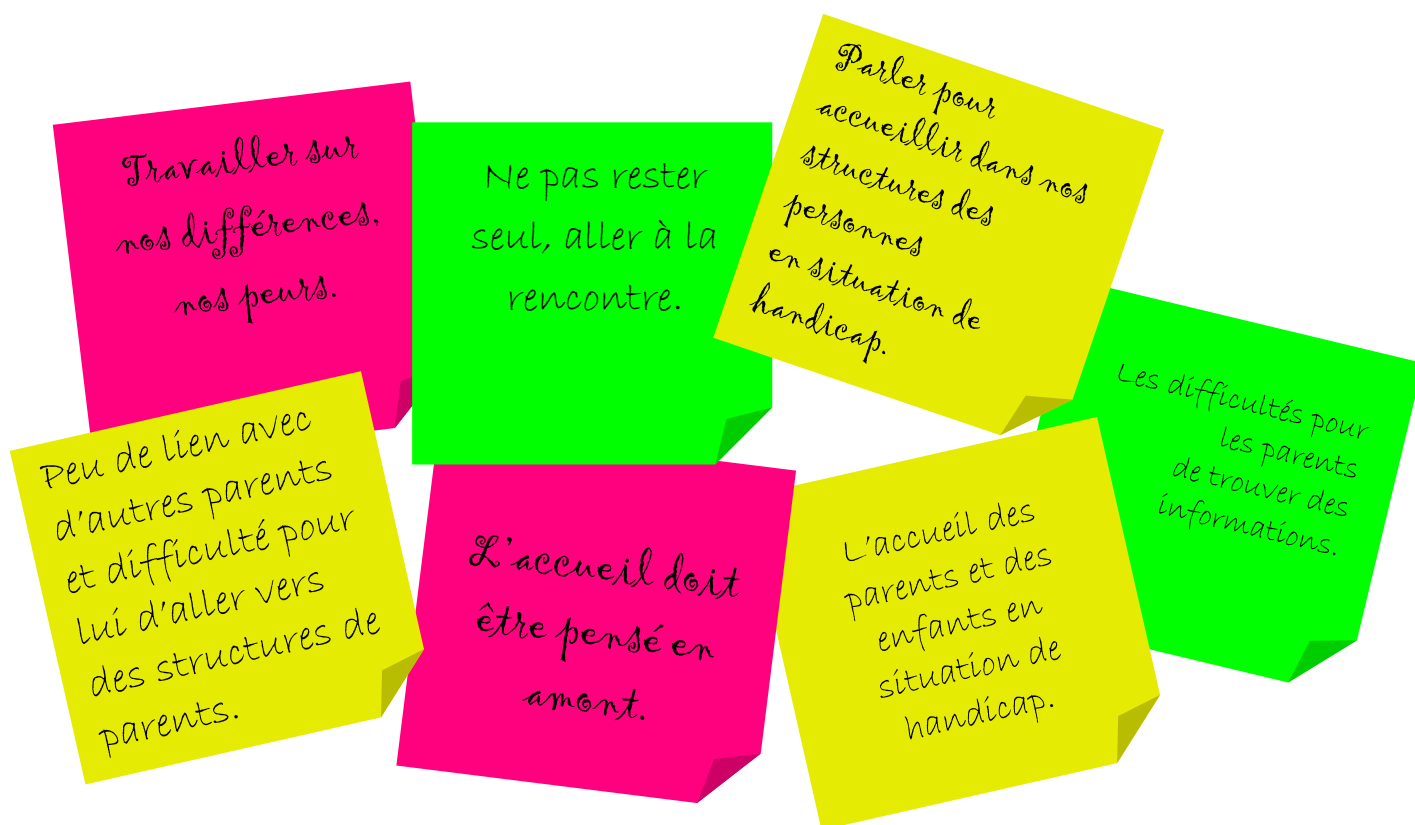 Travailler sur
nos différences,
nos peurs.
Ne pas rester
seul, aller à la
rencontre.
Parler pour
accueillir dans nos
structures des
personnes
en situation de
handicap.
Les difficultés pour
les parents
de trouver des
informations.
Peu de lien avec
d'autres parents
et difficulté pour
lui d'aller vers
des structures de
parents.
L'accueil doit
être pensé en
amont.
L'accueil des
parents et des
enfants en
situation de
handicap.